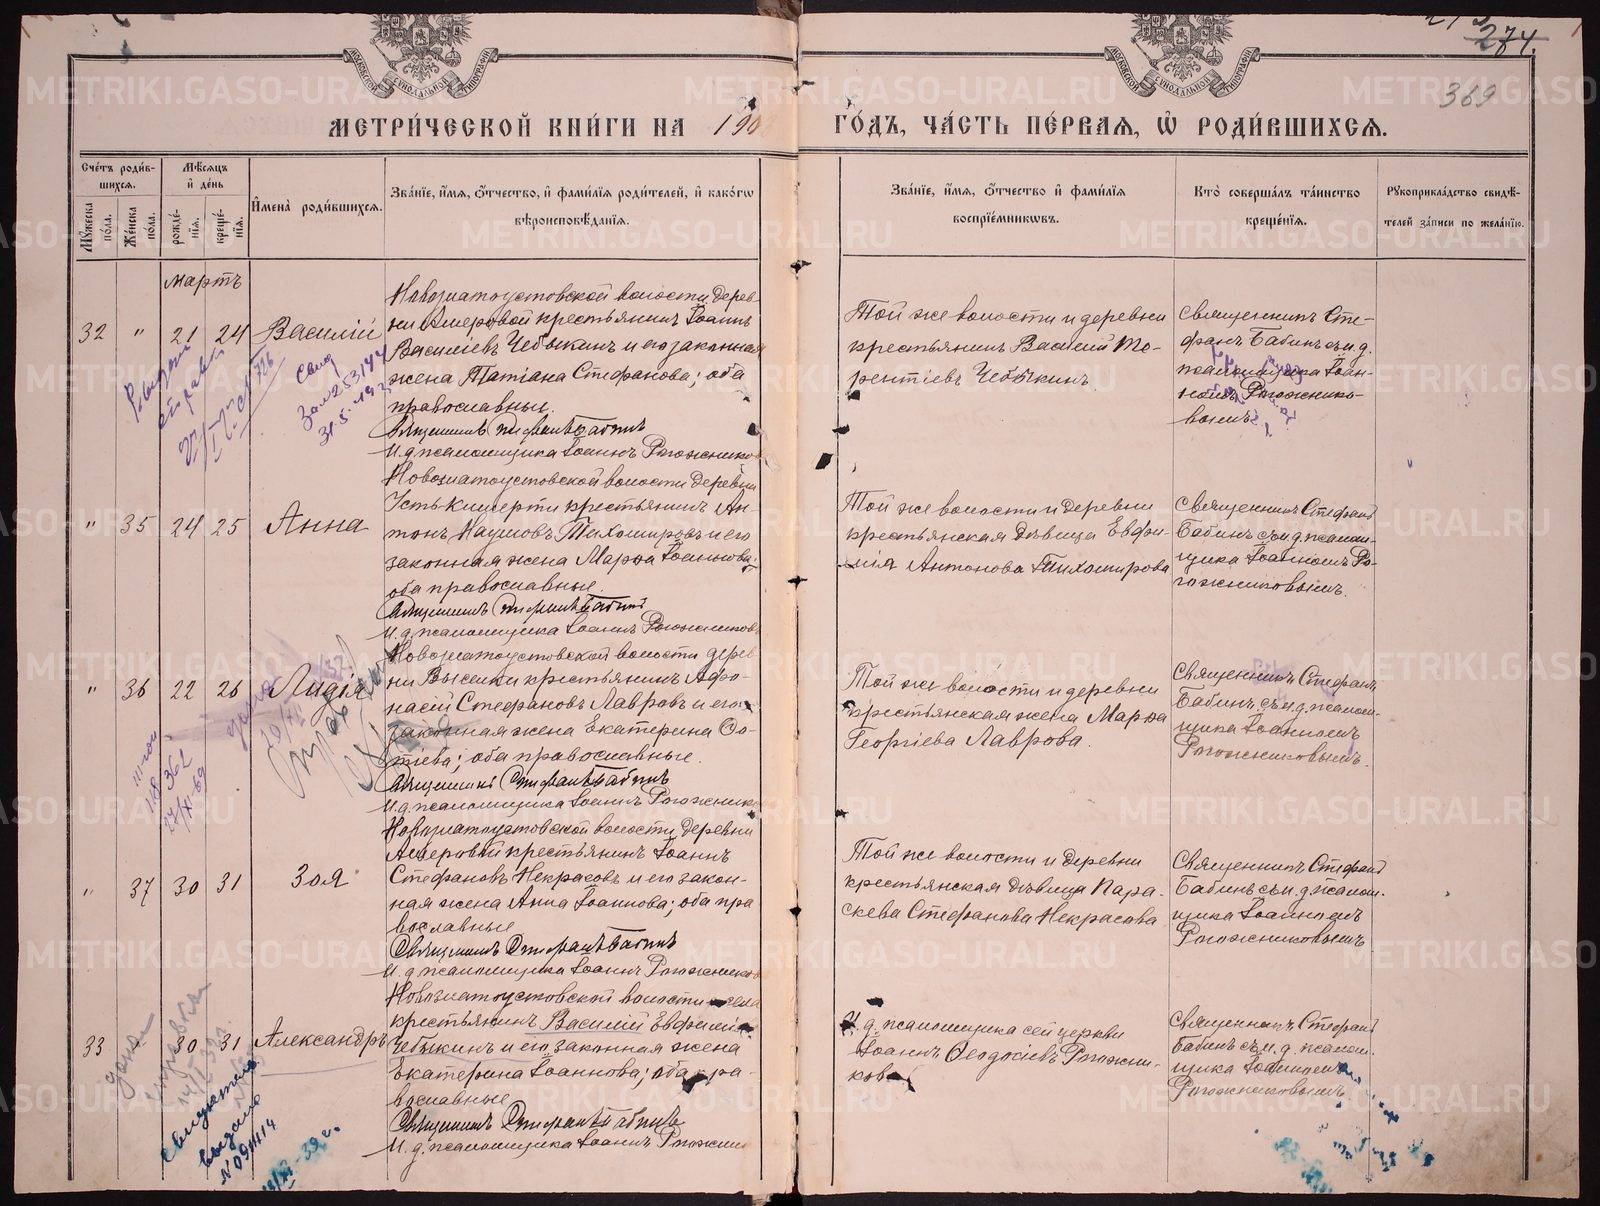 274.
369
МЕТРИ́ЧЕСКОЙ КНИ́ГИ НА 190
ГО́ДЪ, ЧА́СТЬ ПЕ́РВАЯ, Ѡ РОДИ́ВШИХСЯ.
Сче́тъ роди́вшихся.
Мѣ́сяцъ и де́нь
Мꙋ́жеска по́ла.
Же́нска по́ла.
рожде́нїя.
креще́нїя.
И҆мена̀ роди́вшихся.
Зва́нїе, и҆́мя, ѻ҆́тчество, и҆ фами́лїя роди́телей, и҆ како́гѡ
вѣроисповѣ́данїя.
Зва́нїе, и҆́мя, ѻ҆́тчество и҆ фами́лїя
воспрїе́мникѡвъ.
Кто̀ соверша́лъ та́инство
креще́нїя.
Рꙋкоприкла́дство свидѣ́-
телей за́писи по жела́нїю.
мартъ
32 " 21 24 Василій
Новозлатоустовской волости дерев-
ни Амеровой крестьянинъ Іоаннъ
Василіевъ Чебыкинъ и его законная
жена Татіана Стефанова; оба
православные.
Священникъ Стефанъ Бабинъ
И. д. псаломщика Іоаннъ Рогожников
Той же волости и деревни
крестьянинъ Василій Те-
рентіевъ Чебыкинъ.
Священникъ Сте-
фанъ Бабинъ съ и. д.
псаломщика Іоан-
номъ Рогожнико-
вымъ.
" 35 24 25 Анна
Новозлатоустовской волости деревни
Усть-Кишерти крестьянинъ Ан-
тонъ Наумовъ Тихомировъ и его
законная жена Марѳа Іоаннова;
оба православные.
Священникъ Стефанъ Бабинъ
И. д. псаломщика Іоаннъ Рогожников
Той же волости и деревни
крестьянская дѣвица Евфи-
мія Антонова Тихомирова
Священникъ Стефанъ
Бабинъ съ и. д. псалом-
щика Іоанномъ Ро-
гожниковымъ.
" 36 22 26 Лидія
Новозлатоустовской волости дерев
ни Выселки крестьянинъ Афа-
насій Стефановъ Лавровъ и его
законная жена Екатерина Фо-
тіева; оба православные.
Священникъ Стефанъ Бабинъ
И. д. псаломщика Іоаннъ Рогожник
Той же волости и деревни
крестьянская жена Марѳа
Георгіева Лаврова.
Священникъ Стефанъ
Бабинъ съ и. д. псалом-
щика Іоанномъ
Рогожниковымъ.
" 37 30 31 Зоя
Новозлатоустовской волости деревни
Амеровой крестьянинъ Іоаннъ
Стефановъ Некрасовъ и его закон-
ная жена Анна Іоаннова; оба пра
вославные
Священникъ Стефанъ Бабинъ
И. д. псаломщика Іоаннъ Рогожников
Той же волости и деревни
крестьянская дѣвица Пара-
скева Стефанова Некрасова
Священникъ Стефанъ
Бабинъ съ и. д. псалом-
щика Іоанномъ
Рогожниковымъ
33 30 31 Александръ
Новозлатоустовской волости села
крестьянинъ Василій Евфимі
Чебыкинъ и его законная жена
Екатерина Іоаннова; оба пра-
вославные
Священникъ Стефанъ Бабинъ
И. д. псаломщика Іоаннъ Рогожник
И. д. псаломщика сей церкви
Іоаннъ Ѳеодосіевъ Рогожни-
ковъ
Священникъ Стефанъ
Бабинъ съ и. д. псалом-
щика Іоанномъ
Рогожниковымъ.
METRIKI.GASO-URAL.RU